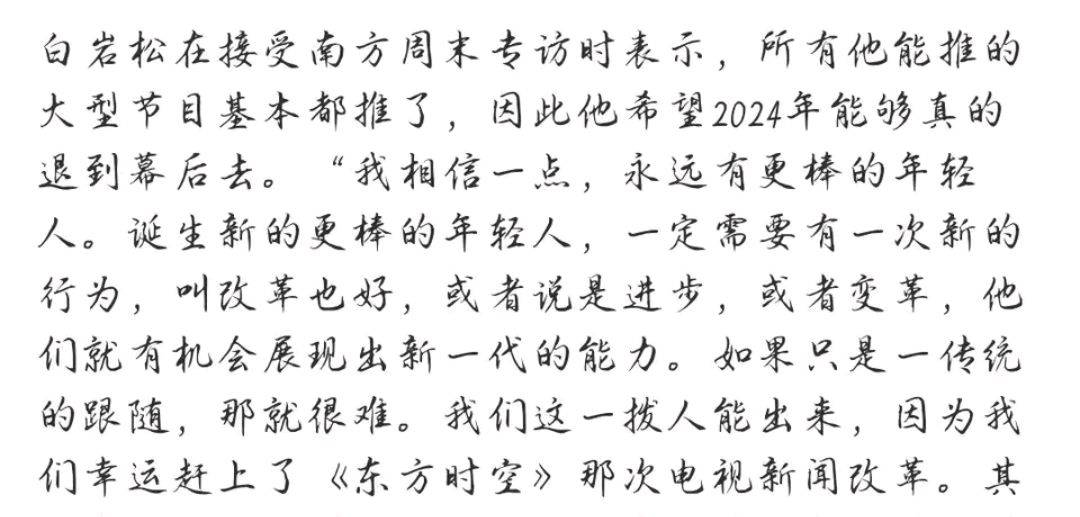 白岩松在接受南方周末专访时表示，所有他能推的
大型节目基本都推了，因此他希望2024年能够真的
退到幕后去。“我相信一点，永远有更棒的年轻
人。诞生新的更棒的年轻人，一定需要有一次新的
行为，叫改革也好，或者说是进步，或者变革，他
们就有机会展现出新一代的能力。如果只是一传统
的跟随，那就很难。我们这一拨人能出来，因为我
们幸运赶上了《东方时空》那次电视新闻改革。其